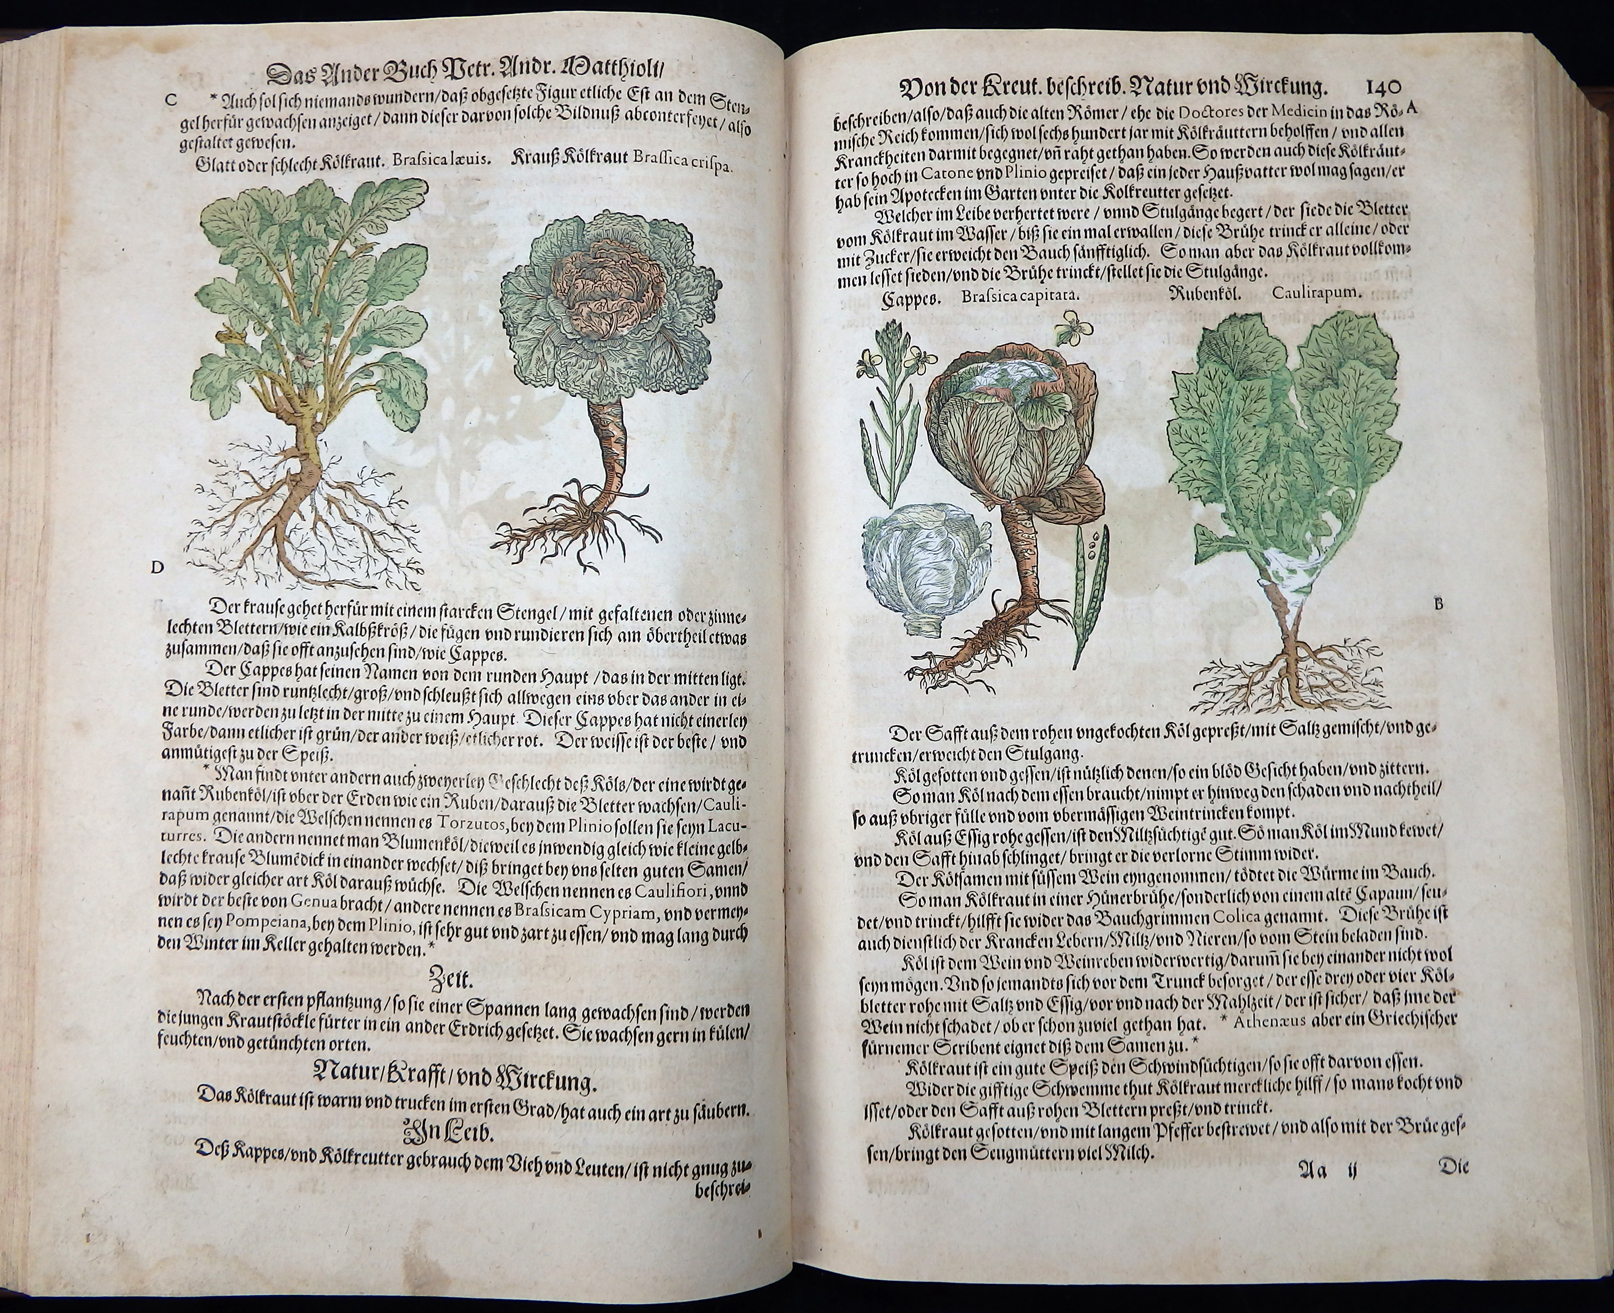 Das Ander Buch Petr. Andr. Matthioli/
C
* Auch sol sich niemands wundern/daß obgesetzte Figur etliche Est an dem Sten-
gel herfür gewachsen anzeiget/dann dieser darvon solche Bildnuß abconterfeyet/also
gestaltet gewesen.
Glatt oder schlecht Kölkraut. Brassica læuis. Krauß Kölkraut Brassica crispa.
D
Der krause gehet herfür mit einem starcken Stengel/mit gefaltenen oder zinne-
lechten Blettern/wie ein Kalbßkröß/die fügen vnd rundieren sich am öbertheil etwas
zusammen/daß sie offt anzusehen sind/wie Cappes.
Der Cappes hat seinen Namen von dem runden Haupt/das in der mitten ligt.
Die Bletter sind runtzlecht/groß/vnd schleußt sich allwegen eins vber das ander in ei-
ne runde/werden zu letzt in der mitte zu einem Haupt. Dieser Cappes hat nicht einerley
Farbe/dann etlicher ist grün/der ander weiß/etlicher rot. Der weisse ist der beste/vnd
anmütigest zu der Speiß.
* Man findt vnter andern auch zweyerley Geschlecht deß Köls/der eine wirdt ge-
nañt Rubenköl/ist vber der Erden wie ein Ruben/darauß die Bletter wachsen/Cauli-
rapum genannt/die Welschen nennen es Torzutos,bey dem Plinio sollen sie seyn Lacu-
turres. Die andern nennet man Blumenköl/dieweil es jnwendig gleich wie kleine gelb-
lechte krause Blumẽdick in einander wechset/diß bringet bey vns selten guten Samen/
daß wider gleicher art Köl darauß wüchse. Die Welschen nennen es Caulifiori,vnnd
wirdt der beste von Genua bracht/andere nennen es Brassicam Cypriam,vnd vermey-
nen es sey Pompeiana,bey dem Plinio,ist sehr gut vnd zart zu essen/vnd mag lang durch
den Winter im Keller gehalten werden.*
Zeit.
Nach der ersten pflantzung/so sie einer Spannen lang gewachsen sind/werden
die jungen Krautstöckle fürter in ein ander Erdrich gesetzet. Sie wachsen gern in külen/
feuchten/vnd getünchten orten.
Natur/Krafft/vnd Wirckung.
Das Kölkraut ist warm vnd trucken im ersten Grad/hat auch ein art zu säubern.
In Leib.
Deß Kappes/vnd Kölkreutter gebrauch dem Vieh vnd Leuten/ist nicht gnug zu-
beschrei-
Von der Kreut. beschreib. Natur vnd Wirckung. 140
A
beschreiben/also/daß auch die alten Römer/ehe die Doctores der Medicin in das Rö-
mische Reich kommen/sich wol sechs hundert jar mit Kölkräuttern beholffen/vnd allen
Kranckheiten darmit begegnet/vñ raht gethan haben. So werden auch diese Kölkräut-
ter so hoch in Catone vnd Plinio gepreiset/daß ein jeder Haußvatter wol mag sagen/er
hab sein Apotecken im Garten vnter die Kolkreutter gesetzet.
Welcher im Leibe verhertet were/vnnd Stulgänge begert/der siede die Bletter
vom Kölkraut im Wasser/biß sie ein mal erwallen/diese Brühe trinck er alleine/oder
mit Zucker/sie erweicht den Bauch sänfftiglich. So man aber das Kölkraut vollkom-
men lesset sieden/vnd die Brühe trinckt/stellet sie die Stulgänge.
Cappes. Brassica capitata. Rubenköl. Caulirapum.
B
Der Safft auß dem rohen vngekochten Köl gepreßt/mit Saltz gemischt/vnd ge-
truncken/erweicht den Stulgang.
Köl gesotten vnd gessen/ist nützlich denen/so ein blöd Gesicht haben/vnd zittern.
So man Köl nach dem essen braucht/nimpt er hinweg den schaden vnd nachtheil/
so auß vbriger fülle vnd vom vbermässigen Weintrincken kompt.
Köl auß Essig rohe gessen/ist den Miltzsüchtigẽ gut. So man Köl im Mund kewet/
vnd den Safft hinab schlinget/bringt er die verlorne Stimm wider.
Der Kölsamen mit süssem Wein eyngenommen/tödtet die Würme im Bauch.
So man Kölkraut in einer Hünerbrühe/sonderlich von einem altẽ Capaun/seu-
det/vnd trinckt/hilfft sie wider das Bauchgrimmen Colica genannt. Diese Brühe ist
auch dienstlich der Krancken Lebern/Miltz/vnd Nieren/so vom Stein beladen sind.
Köl ist dem Wein vnd Weinreben widerwertig/darum̃ sie bey einander nicht wol
seyn mögen. Vnd so jemandts sich vor dem Trunck besorget/der esse drey oder vier Köl-
bletter rohe mit Saltz vnd Essig/vor vnd nach der Mahlzeit/der ist sicher/daß jme der
Wein nicht schadet/ob er schon zuviel gethan hat. * Athenæus aber ein Griechischer
fürnemer Scribent eignet diß dem Samen zu.*
Kölkraut ist ein gute Speiß den Schwindsüchtigen/so sie offt darvon essen.
Wider die gifftige Schwemme thut Kölkraut merckliche hilff/so mans kocht vnd
isset/oder den Safft auß rohen Blettern preßt/vnd trinckt.
Kölkraut gesotten/vnd mit langem Pfeffer bestrewet/vnd also mit der Brüe ges-
sen/bringt den Seugmüttern viel Milch.
Aa ij Die